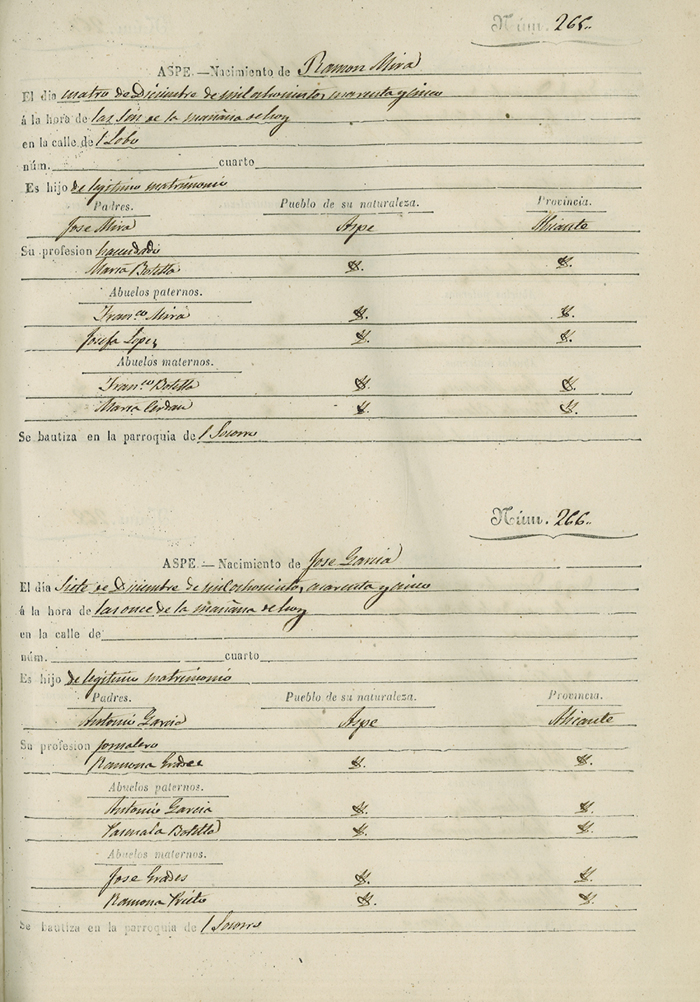 Núm. 265..
ASPE.—Nacimiento de Ramon Mira
El dia cuatro de Diciembre de mil ochocientos cuarenta y cinco
á la hora de las seis de la mañana de hoy
en la calle de l Lobo
núm. cuarto
Es hijo de legitimo matrimonio
Padres. Pueblo de su naturaleza. Provincia.
Jose Mira Aspe Alicante
Su profesion hacendado
Maria Botella
Abuelos paternos.
Fran.co Mira
Josefa Lopez
Abuelos maternos.
Fran.co Botella
Maria Cerdan
Se bautiza en la parroquia de l Socorro
Núm. 266..
ASPE.—Nacimiento de Jose Garcia
El dia Siete de Diciembre de mil ochocientos cuarenta y cinco
á la hora de las once de la mañana de hoy
en la calle de
núm. cuarto
Es hijo de legitimo matrimonio
Padres. Pueblo de su naturaleza. Provincia.
Antonio Garcia Aspe Alicante
Su profesion jornalero
Ramona
Abuelos paternos.
Antonio Garcia
Botella
Abuelos maternos.
Jose
Ramona Prieto
Se bautiza en la parroquia de l Socorro